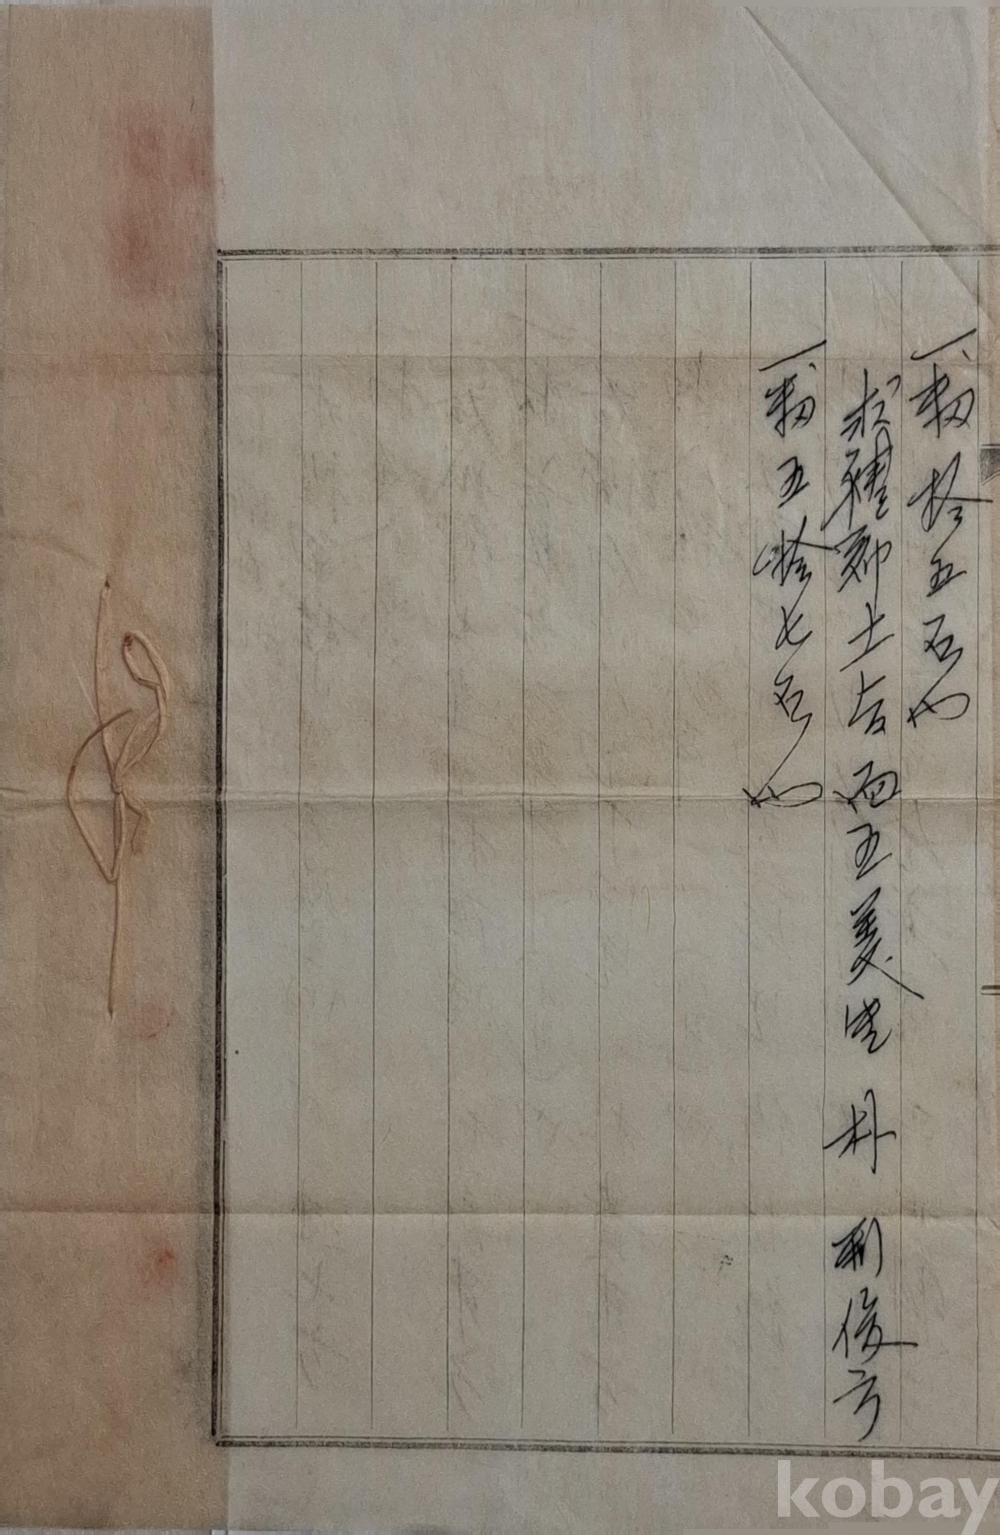 一、籾 拾五石也
求禮郡土旨面五美里 朴 判俊方
一、籾 五拾七石也
kobay